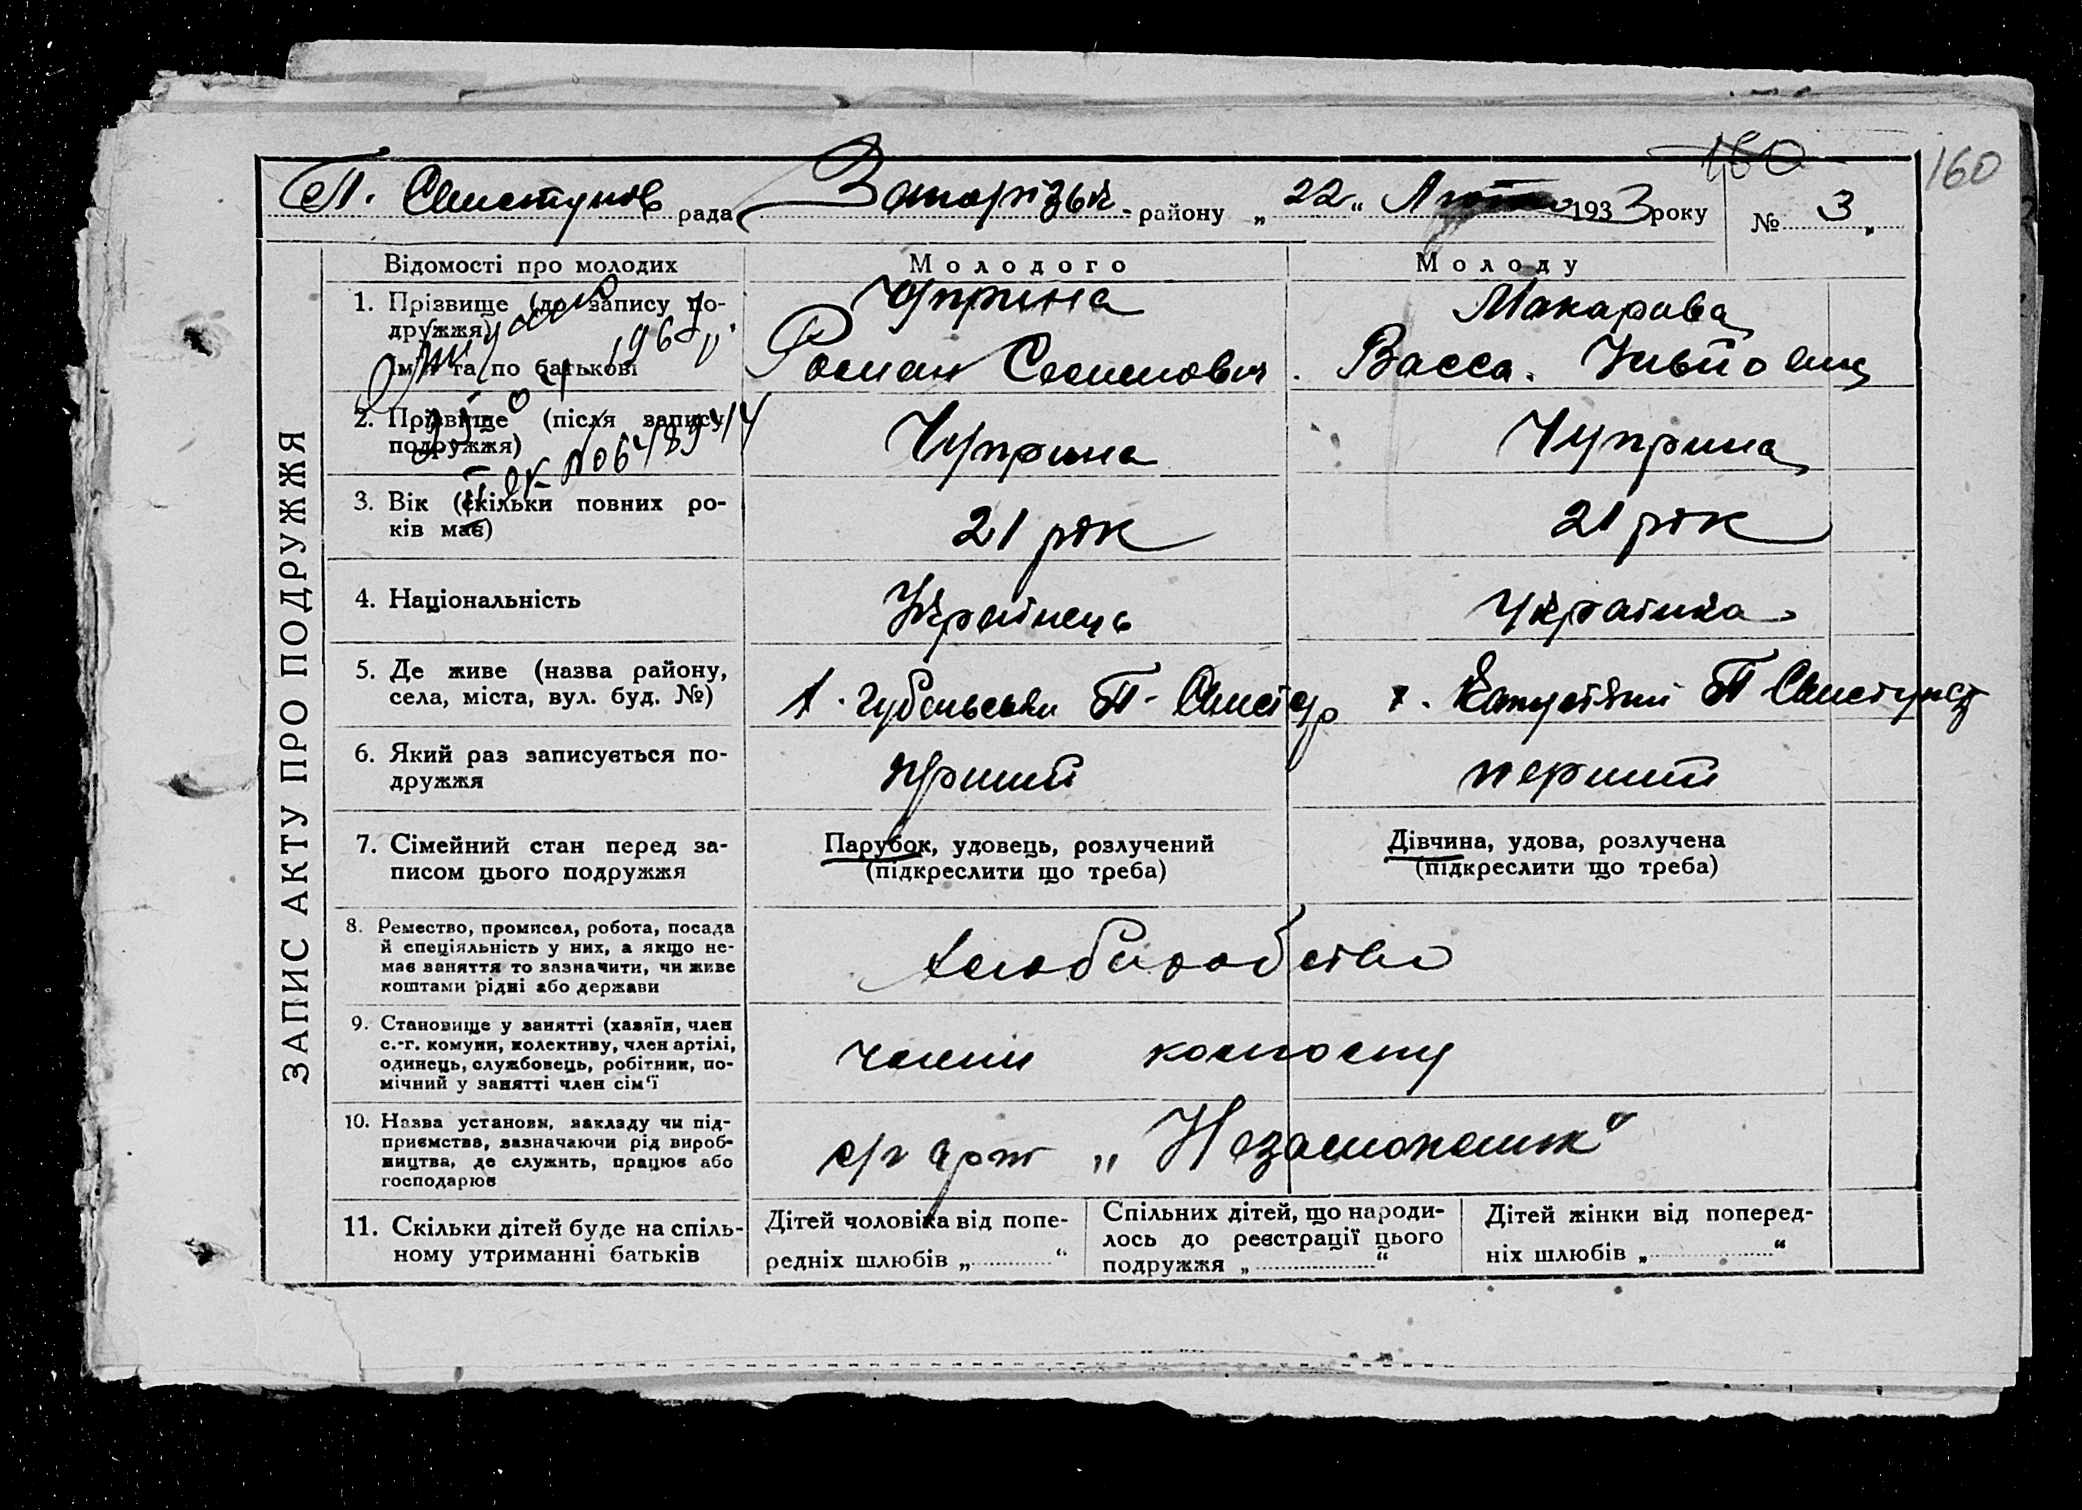 160
160
П. Свистунов рада Запорізьк. району „ 22 “ Лютого 1933 року № 3
ЗАПИС АКТУ ПРО ПОДРУЖЖЯ
Відомості про молодих Молодого Молоду
1. Прізвище (до запису по-
дружжя) Чуприна Макарова
Ім'я та по батькові Роман Семенович. Васса.
2. Прізвище (після запису
подружжя) Чуприна Чуприна
3. Вік (скільки повних ро-
ків має) 21 рік 21 рік
4. Національність Українець Українка
5. Де живе (назва району,
села, міста, вул. буд. №) П. Свист х. П Свистунов
6. Який раз записується по-
дружжя перший
7. Сімейний стан перед за-
писом цього подружжя
Парубок, удовець, розлучений
(підкреслити що треба)
Дівчина, удова, розлучена
(підкреслити що треба)
8. Ремество, промисел, робота, посада
й спеціяльність у них, а якщо не-
має заняття то зазначити, чи живе
коштами рідні або держави
хлиборобство
9. Становище у занятті (хазяїн, член
с.-г. комуни, колективу, член артілі,
одинець, службовець, робітник, по-
мічний у занятті член сім'ї
члени колгоспу
10. Назва установи, закладу чи під-
приємства, зазначаючи рід вироб-
ництва, де служить, працює або
господарює
с/г арт „Незаможник“
11. Скільки дітей буде на спіль-
ному утриманні батьків
Дітей чоловіка від попе-
редніх шлюбів „ “
Спільних дітей, що народи-
лось до реєстрації цього
подружжя „ “
Дітей жінки від поперед-
ніх шлюбів „ “